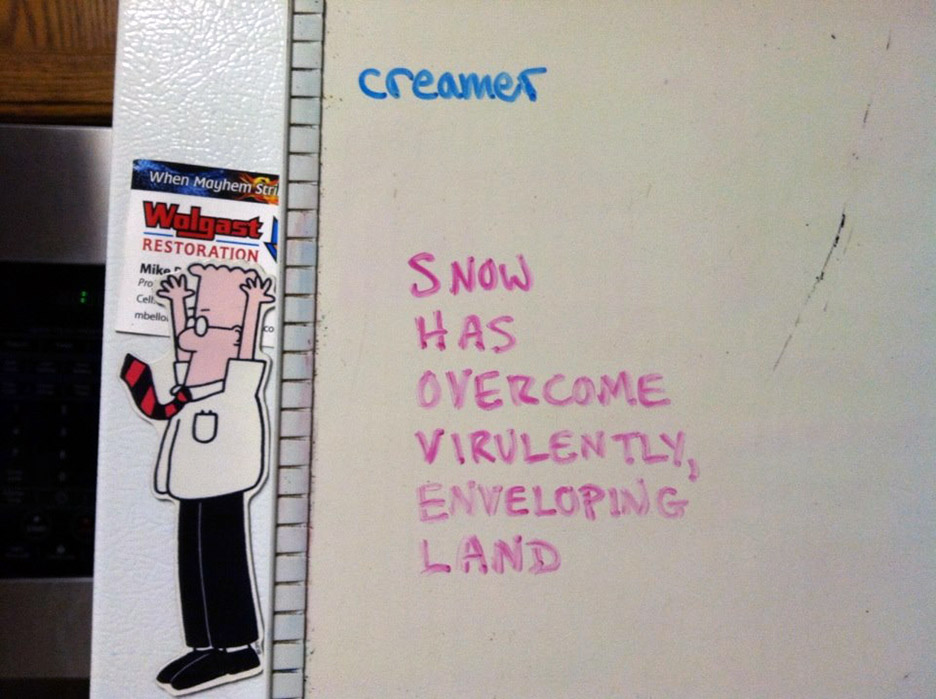 creamer
When Mayhem Stri
Wolgast
RESTORATION
Mike
Pro
Cell:
mbello
co
SNOW
HAS
OVERCOME
VIRULENTLY,
ENVELOPING
LAND